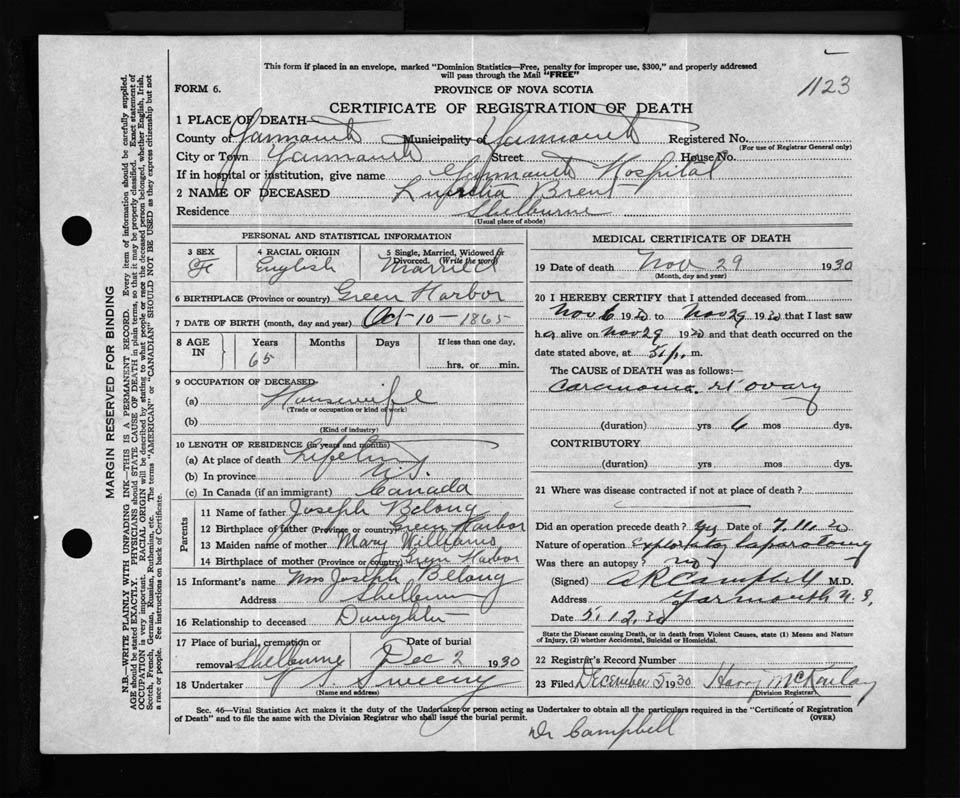 This form if placed in an envelope, marked "Dominion Statistics—Free, penalty for improper use, $300," and properly addressed
will pass through the Mail "FREE"
1123
FORM 6.
PROVINCE OF NOVA SCOTIA
CERTIFICATE OF REGISTRATION OF DEATH
1 PLACE OF DEATH
County of Yarmouth Municipality of Yarmouth Registered No.
(For use of Registrar General only)
City or Town Yarmouth Street House No.
If in hospital or institution, give name Yarmouth Hospital
2 NAME OF DECEASED Brent
Residence Shelburne
(Usual place of abode)
PERSONAL AND STATISTICAL INFORMATION
3 SEX 4 RACIAL ORIGIN 5 Single, Married, Widowed or Divorced. (Write the word)
F English Married
6 BIRTHPLACE (Province or country) Green Harbor
7 DATE OF BIRTH (month, day and year) Oct-10-1865
8 AGE IN Years Months Days If less than one day,
65 hrs. or min.
9 OCCUPATION OF DECEASED
(a) Housewife
(Trade or occupation or kind of work)
(b)
(Kind of industry)
10 LENGTH OF RESIDENCE (in years and months)
(a) At place of death Lifetime
(b) In province
(c) In Canada (if an immigrant) Canada
Parents
11 Name of father Joseph Belong
12 Birthplace of father (Province or country) Green Harbor
13 Maiden name of mother Mary Williams
14 Birthplace of mother (Province or country) Green Harbor
15 Informant's name Mrs Joseph Belong
Address Shelburne
16 Relationship to deceased Daughter
17 Place of burial, cremation or removal Shelburne Date of burial Dec 2 1930
18 Undertaker Sweeny
(Name and address)
MEDICAL CERTIFICATE OF DEATH
19 Date of death Nov 29 1930
(Month, day and year)
20 I HEREBY CERTIFY that I attended deceased from
Nov 6 1930 to Nov 29 1930 that I last saw
her alive on Nov 29 1930 and that death occurred on the
date stated above, at 5 p. m.
The CAUSE of DEATH was as follows:
Carcinoma rt ovary
(duration) yrs 6 mos dys.
CONTRIBUTORY
(duration) yrs mos dys.
21 Where was disease contracted if not at place of death?
Did an operation precede death? yes Date of 7.11.30
Nature of operation Exploratory laparotomy
Was there an autopsy? no
(Signed) A R Campbell M.D.
Address Yarmouth N.S.
Date 5.12.30
State the Disease causing Death, or in death from Violent Causes, state (1) Means and Nature
of Injury, (2) whether Accidental, Suicidal or Homicidal.
22 Registrar's Record Number
23 Filed December 5 1930 Harry McKinlay
(Division Registrar)
Sec. 46—Vital Statistics Act makes it the duty of the Undertaker or person acting as Undertaker to obtain all the particulars required in the "Certificate of Registration
of Death" and to file the same with the Division Registrar who shall issue the burial permit.
(OVER)
Dr Campbell
MARGIN RESERVED FOR BINDING
N.B.—WRITE PLAINLY WITH UNFADING INK—THIS IS A PERMANENT RECORD. Every item of information should be carefully supplied.
AGE should be stated EXACTLY. PHYSICIANS should STATE CAUSE OF DEATH in plain terms, so that it may be properly classified. Exact statement of
OCCUPATION is very important. RACIAL ORIGIN will be described by stating to what people or race the deceased person belonged, whether English, Irish,
Scotch, French, German, Russian, Ruthenian, etc. The terms "AMERICAN" or "CANADIAN" SHOULD NOT BE USED as they express citizenship but not
a race or people. See instructions on back of Certificate.